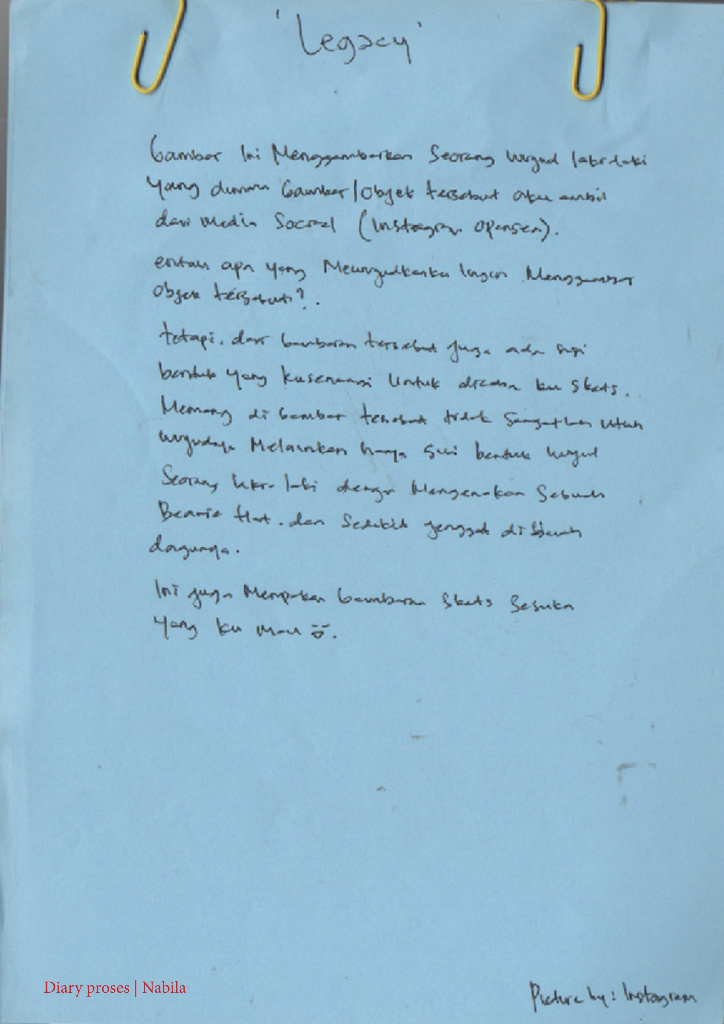 'Legacy'
Gambar Ini Menggambarkan Seorang wujud laki-laki
yang dimana Gambar/objek tersebut aku ambil
dari media Social (Instagram
entah apa yang Mewujudkanku Ingin Menggambar
objek tersebut?.
tetapi. dari Gambaran tersebut juga ada sisi
bentuk yang kusenangi Untuk di ku Skets.
Memang di Gambar tersebut tidak Utuh
wujudnya Melainkan hanya Sisi bentuk wujud
Seorang laki-laki dengan Mengenakan Sebuah
Beanie Hat. dan Sedikit jenggot di
dagunya.
Ini juga Merupakan Gambaran Skets Sesuka
yang ku mau
Diary proses | Nabila
Picture by: Instagram